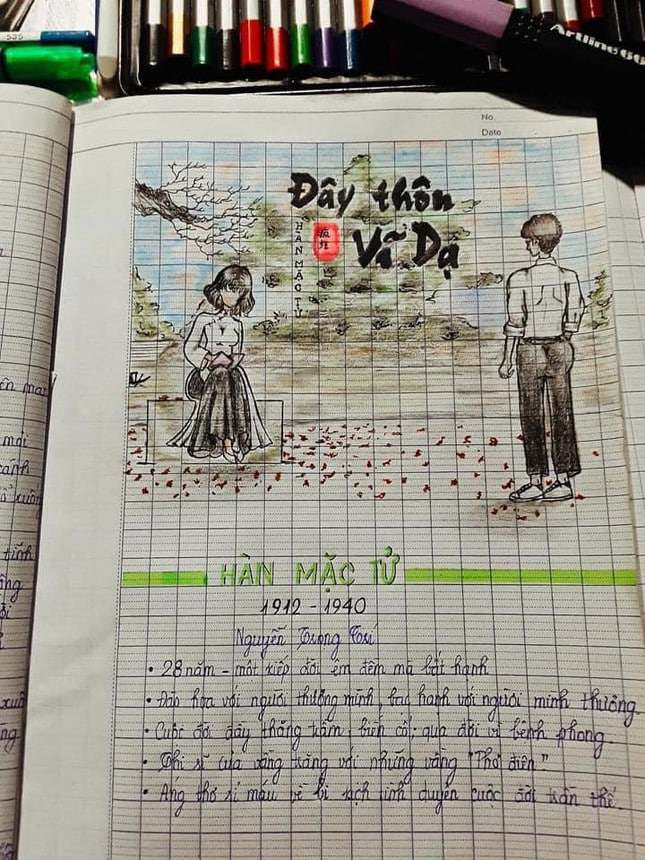 535
Artline 66
No.
Date
Đây thôn
Vĩ Dạ
HÀN MẶC TỬ
HÀN MẶC TỬ
1912 - 1940
Nguyễn Trọng Trí
• 28 năm - một kiếp đời êm đềm mà bất hạnh
• Đào hoa với người thương mình, hạnh với người mình thương
• Cuộc đời đầy thăng trầm, biến cố, qua đời vì bệnh phong.
• Thi sĩ của vầng trăng với những vầng "Thơ điên"
• Áng thơ rỉ máu về bi kịch tình duyên cuộc đời trần thế.